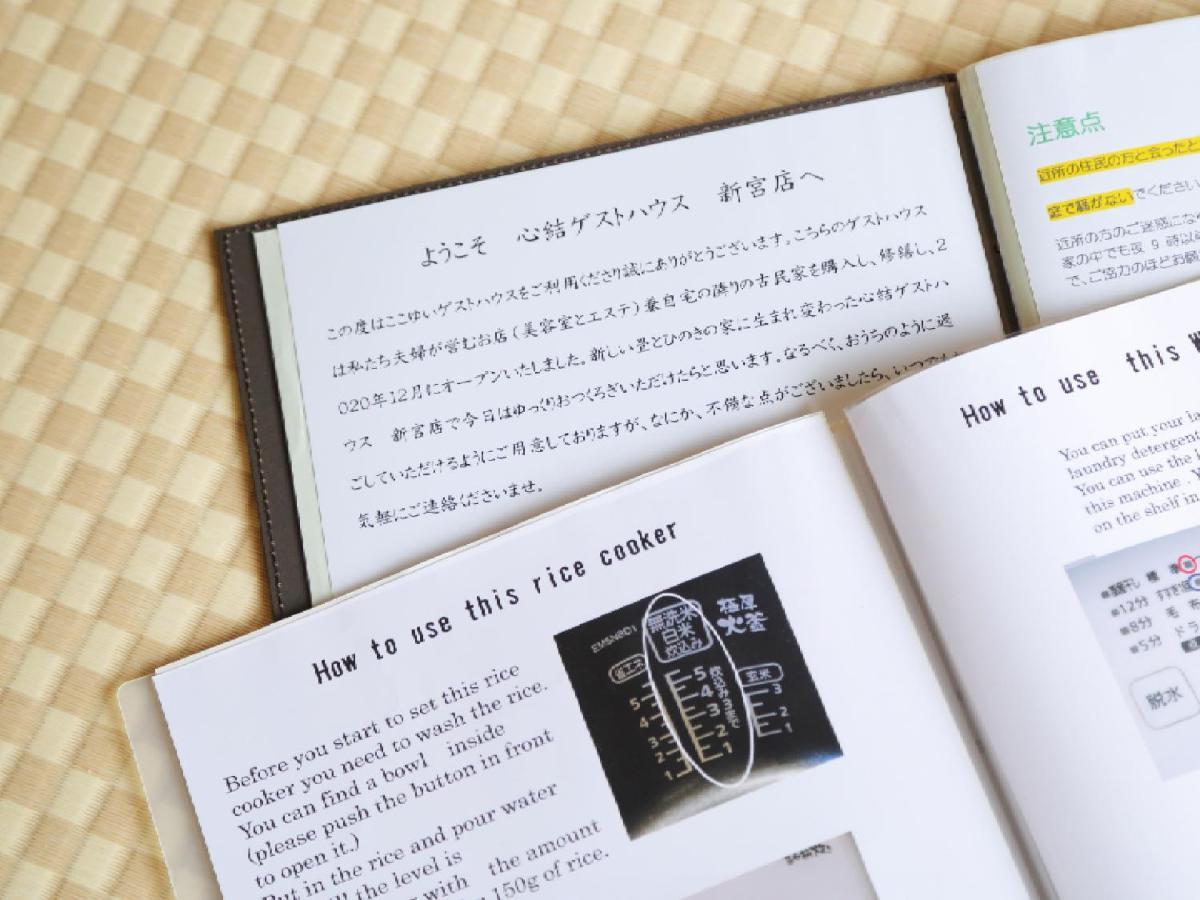 ようこそ 心結ゲストハウス 新宮店へ
この度はここゆいゲストハウスをご利用くださり誠にありがとうございます。こちらのゲストハウス
は私たち夫婦が営むお店(美容室とエステ)兼自宅の隣りの古民家を購入し、修繕し、2
020年12月にオープンいたしました。新しい畳とひのきの家に生まれ変わった心結ゲストハ
ウス 新宮店で今日はゆっくりおつくろぎいただけたらと思います。なるべく、おうちのように過
ごしていただけるようにご用意しておりますが、なにか、不備な点がございましたら、いつでも
気軽にご連絡くださいませ。
注意点
近所の住民の方と会ったと
室で騒がないでください
近所の方のご迷惑にな
家の中でも夜 9 時以
で、ご協力のほどお願
How to use this rice cooker
Before you start to set this rice
cooker you need to wash the rice.
You can find a bowl inside
(please push the button in front
to open it.)
Put in the rice and pour water
the level is
with the amount
150g of rice.
EMSN801
無洗米
白米
炊込み
極厚
火釜
省エネ
玄米
5
4
3
2
1
5
4
3
2
1
3
2
1
How to use this W
You can put your
laundry detergent
You can use the
this machine .
on the shelf in
標準
12分
8分
5分
毛
ドラ
脱水